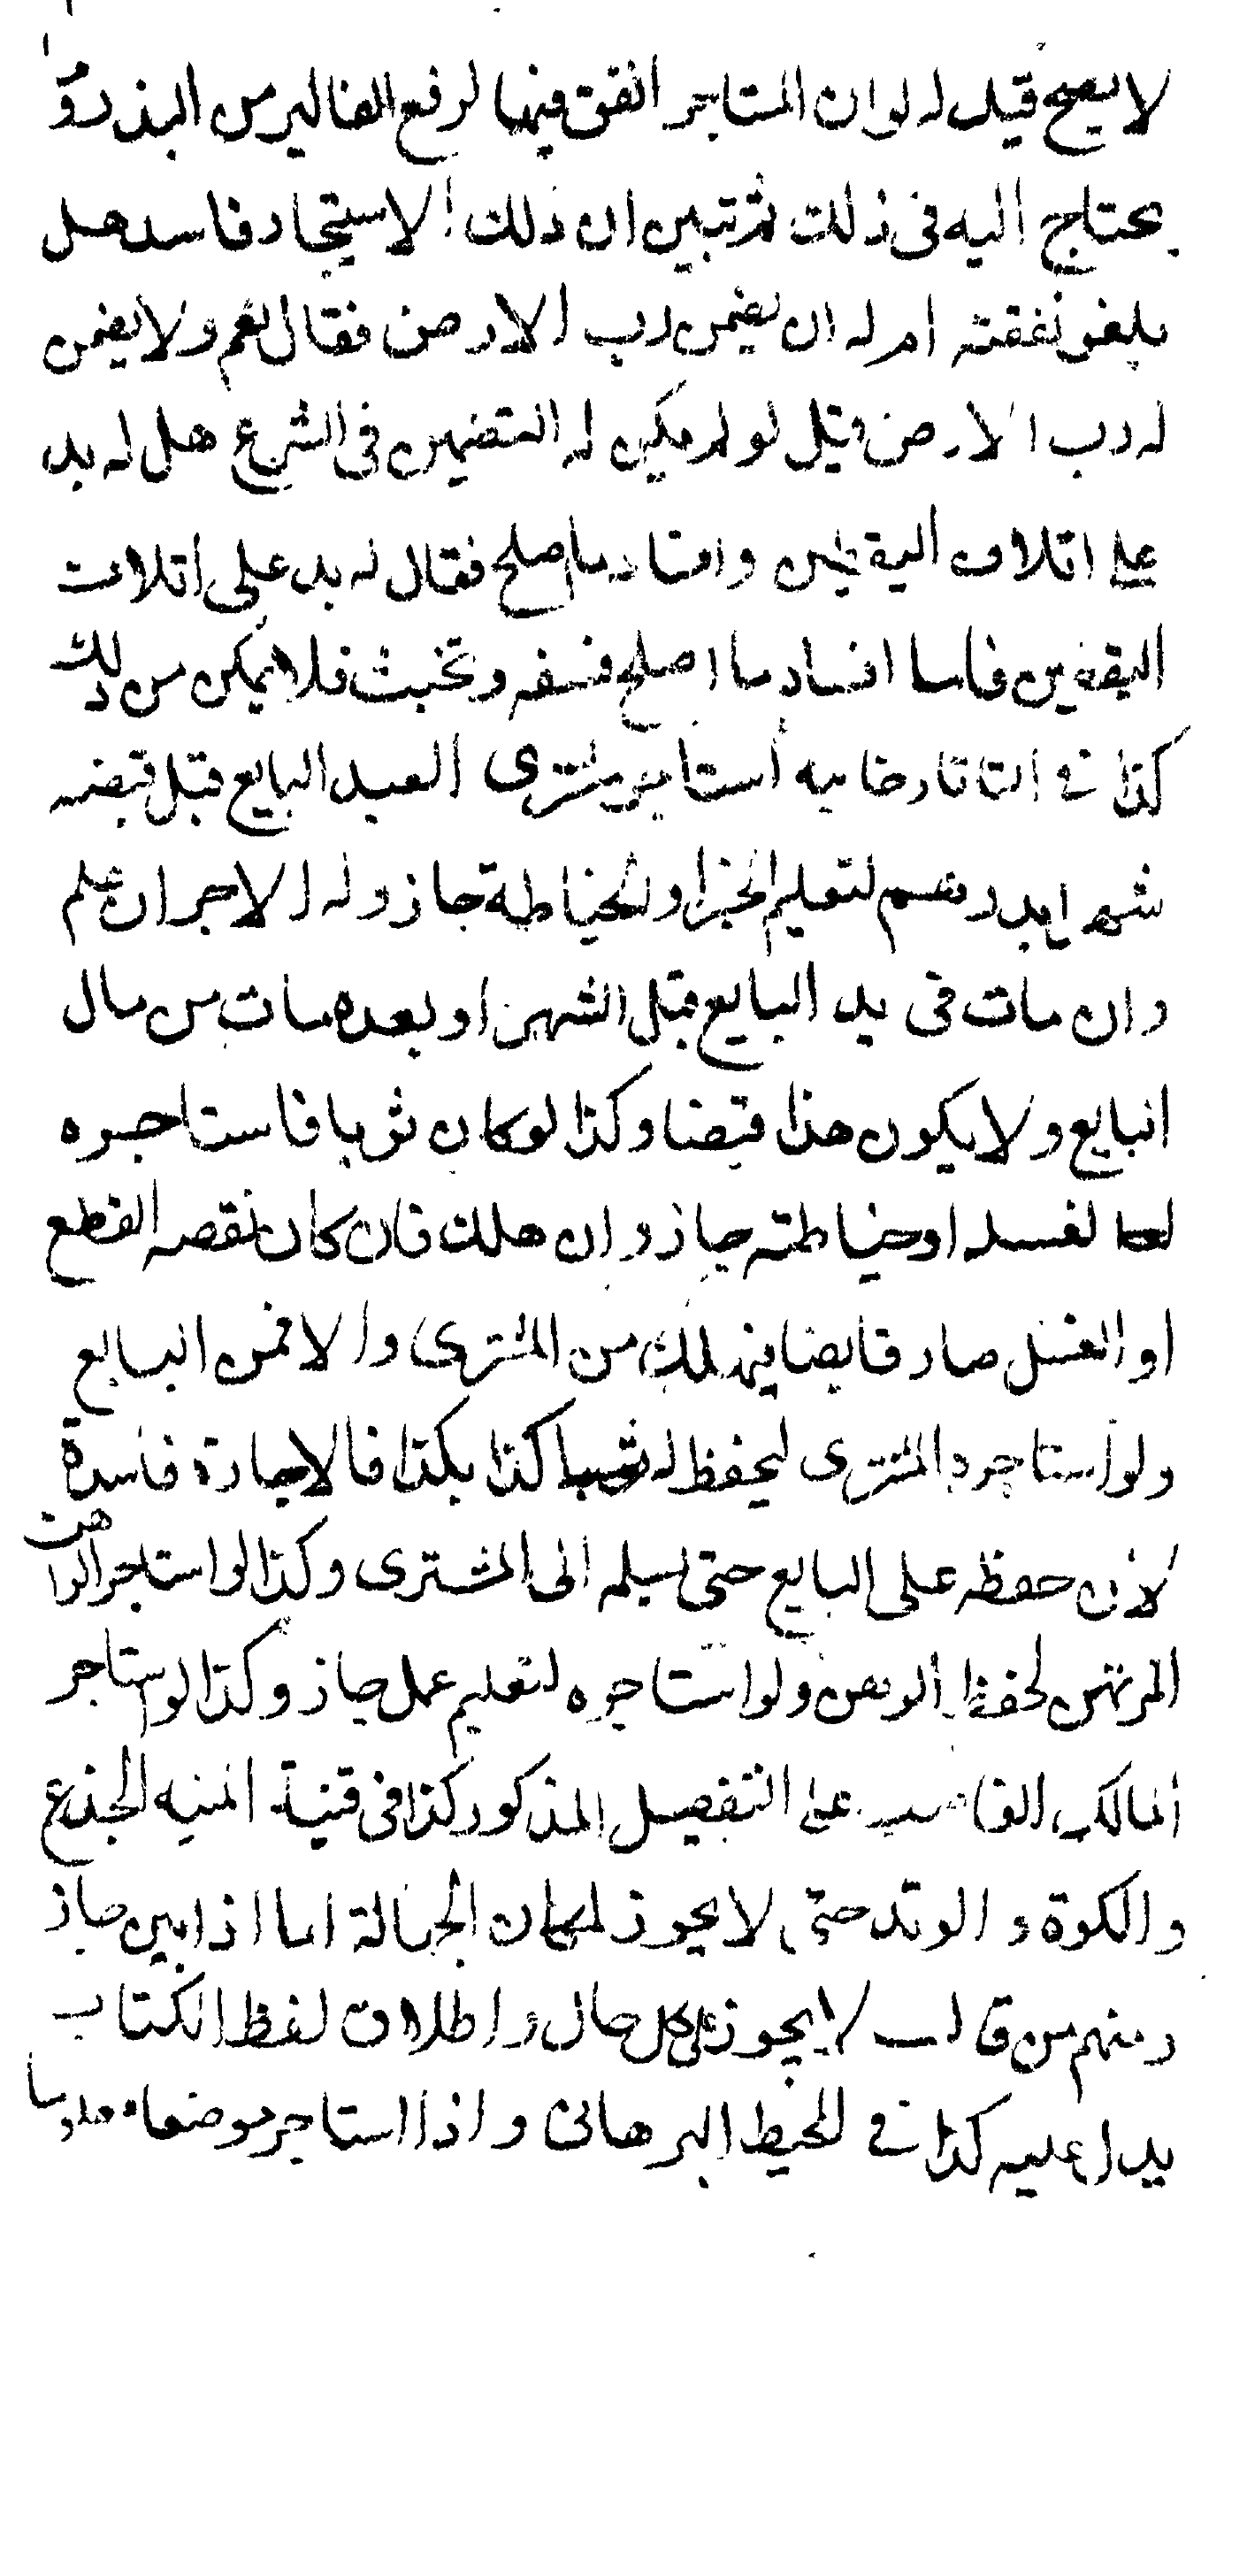 لا يصح قيل له لو ان المستاجر انفق فيها لرفع الفاليز من البذر وما
يحتاج اليه فى ذلك ثم تبين ان ذلك الاستيجار فاسد هل
يلغو نفقته ام له ان يضمن رب الارض فقال نعم ولا يضمن
له رب الارض قيل لو لم يكن له التضمين فى الشرع هل له يد
على اتلاف اليقطين وافساد ما اصلح فقال له يد على اتلاف
اليقطين فاما افساد ما اصلح فسفه وتخبث فلا يمكن من ذلك
كذا فى التاتارخانيه استاجر مشترى العبد البايع قبل قبضه
شهرا بدرهم لتعليم الخبز او الخياطة جاز وله الاجر ان علم
وان مات فى يد البايع قبل الشهر او بعده مات من مال
البايع ولا يكون هذا قبضا وكذا لو كان ثوبا فاستاجره
لغسله او خياطته جاز وان هلك فان كان نقصه القطع
او الغسل صار قابضا فيهلك من المشترى والا فمن البايع
ولو استاجره المشترى ليحفظ له كذا بكذا فالاجارة فاسدة
لان حفظه على البايع حتى يسلمه الى المشترى وكذا لو استاجر الراهن
المرتهن لحفظ الرهن ولو استاجره لتعليم عمل جاز وكذا لو استاجر
المالك الغاصب على التفصيل المذكور كذا فى قنية المنيه الجذع
والكوة و الوتد حتى لا يجوز لمكان الجهالة اما اذا بين جاز
ومنهم من قال لا يجوز على كل حال واطلاق لفظ الكتاب
يدل عليه كذا فى المحيط البرهانى و اذا استاجر موضعا معلوما